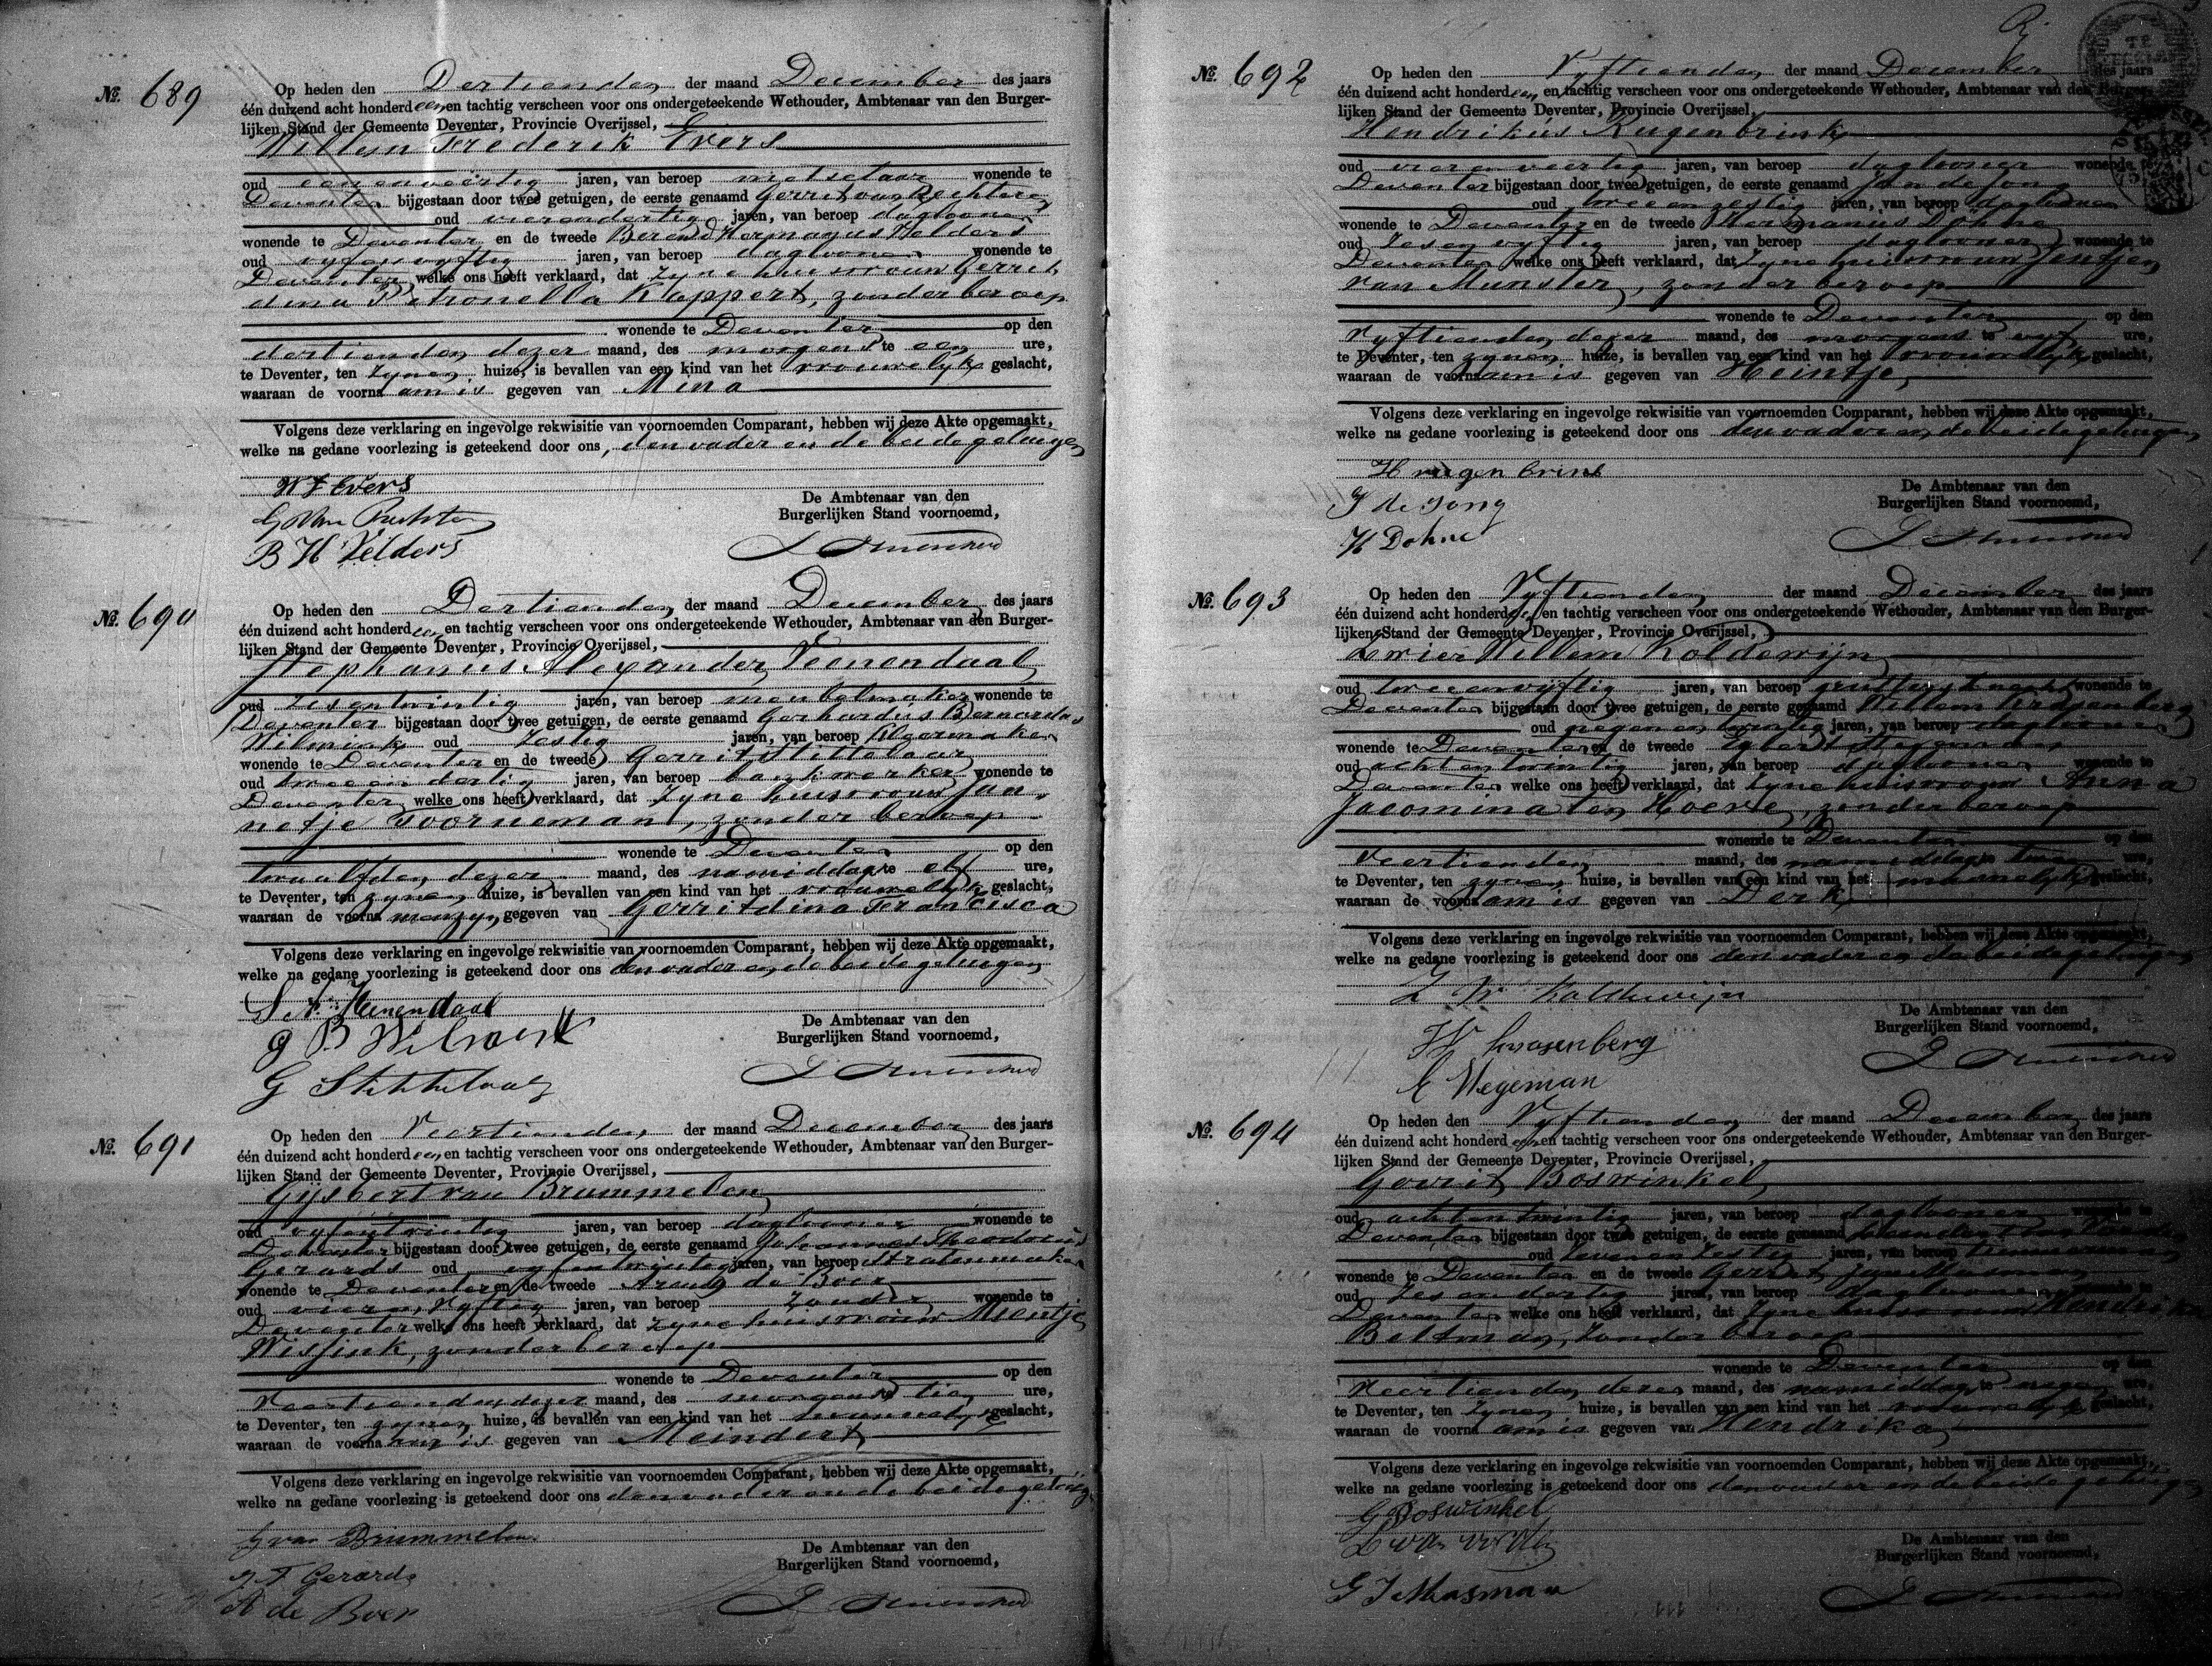 No. 689
Op heden den Dertienden der maand December des jaars
één duizend acht honderd een en tachtig verscheen voor ons ondergeteekende Wethouder, Ambtenaar van den Burger-
lijken Stand der Gemeente Deventer, Provincie Overijssel,
Willem Frederik Evers
oud een en veertig jaren, van beroep metselaar wonende te
Deventer bijgestaan door twee getuigen, de eerste genaamd Gerrit van Rechteren
oud vierendertig jaren, van beroep daglooner
wonende te Deventer en de tweede Berend Hermanus Velders
oud vyfenvyftig jaren, van beroep daglooner wonende te
Deventer welke ons heeft verklaard, dat zyne huisvrouw Gerrit
dina Petronella Kloppert, zonder beroep
wonende te Deventer op den
dertienden dezer maand, des morgens te een ure,
te Deventer, ten zynen huize, is bevallen van een kind van het vrouwelyk geslacht,
waaraan de voornaam is gegeven van Mina
Volgens deze verklaring en ingevolge rekwisitie van voornoemden Comparant, hebben wij deze Akte opgemaakt,
welke na gedane voorlezing is geteekend door ons, den vader en de beide getuigen
W F Evers
G Van Rechteren
B H Velders
De Ambtenaar van den
Burgerlijken Stand voornoemd,
No. 690
Op heden den Dertienden der maand December des jaars
één duizend acht honderd een en tachtig verscheen voor ons ondergeteekende Wethouder, Ambtenaar van den Burger-
lijken Stand der Gemeente Deventer, Provincie Overijssel,
Stephanus Alexander Veenendaal
oud zesentwintig jaren, van beroep meubelmaker wonende te
Deventer bijgestaan door twee getuigen, de eerste genaamd Gerhardus Bernardus
Wilmink oud zestig jaren, van beroep
wonende te Deventer en de tweede Gerrit Stittelaar
oud tweeendertig jaren, van beroep bankwerker wonende te
Deventer welke ons heeft verklaard, dat zyne huisvrouw Jan-
netje Toorneman, zonder beroep
wonende te Deventer op den
twaalfden dezer maand, des namiddags te elf ure,
te Deventer, ten zynen huize, is bevallen van een kind van het vrouwelyk geslacht,
waaraan de voornamen zyn gegeven van Gerritdina Francisca
Volgens deze verklaring en ingevolge rekwisitie van voornoemden Comparant, hebben wij deze Akte opgemaakt,
welke na gedane voorlezing is geteekend door ons den vader en de beide getuigen
S A Veenendaal
G B Wilmink
G Stittelaar
De Ambtenaar van den
Burgerlijken Stand voornoemd,
No. 691
Op heden den Veertienden der maand December des jaars
één duizend acht honderd een en tachtig verscheen voor ons ondergeteekende Wethouder, Ambtenaar van den Burger-
lijken Stand der Gemeente Deventer, Provincie Overijssel,
Gijsbert van Brummelen
oud vyfentwintig jaren, van beroep daglooner wonende te
Deventer bijgestaan door twee getuigen, de eerste genaamd Johannes Theodorus
Gerards oud vyfentwintig jaren, van beroep stratenmaker
wonende te Deventer en de tweede Arend de Boer
oud vieren vyftig jaren, van beroep zonder wonende te
Deventer welke ons heeft verklaard, dat zyne huisvrouw Mientje
Wissink, zonder beroep
wonende te Deventer op den
Veertienden dezer maand, des morgens te tien ure,
te Deventer, ten zynen huize, is bevallen van een kind van het mannelyk geslacht,
waaraan de voornaam is gegeven van Meindert
Volgens deze verklaring en ingevolge rekwisitie van voornoemden Comparant, hebben wij deze Akte opgemaakt,
welke na gedane voorlezing is geteekend door ons den vader en de beide getuigen
G van Brummelen
J T Gerards
A de Boer
De Ambtenaar van den
Burgerlijken Stand voornoemd,
No. 692
Op heden den Vyftienden der maand December des jaars
één duizend acht honderd een en tachtig verscheen voor ons ondergeteekende Wethouder, Ambtenaar van den Burger-
lijken Stand der Gemeente Deventer, Provincie Overijssel,
Hendrikus Rugenbrink
oud vierenveertig jaren, van beroep daglooner wonende te
Deventer bijgestaan door twee getuigen, de eerste genaamd Jan de Jong
oud tweeenzestig jaren, van beroep daglooner
wonende te Deventer en de tweede Hermanus Dohne
oud zesenvyftig jaren, van beroep daglooner wonende te
Deventer welke ons heeft verklaard, dat zyne huisvrouw Jentjen
van Munster, zonder beroep
wonende te Deventer op den
Vyftienden dezer maand, des morgens te vyf ure,
te Deventer, ten zynen huize, is bevallen van een kind van het vrouwelyk geslacht,
waaraan de voornaam is gegeven van Heintje
Volgens deze verklaring en ingevolge rekwisitie van voornoemden Comparant, hebben wij deze Akte opgemaakt,
welke na gedane voorlezing is geteekend door ons den vader en de beide getuigen
H rugenbrink
J de Jong
H Dohne
De Ambtenaar van den
Burgerlijken Stand voornoemd,
No. 693
Op heden den Vyftienden der maand December des jaars
één duizend acht honderd een en tachtig verscheen voor ons ondergeteekende Wethouder, Ambtenaar van den Burger-
lijken Stand der Gemeente Deventer, Provincie Overijssel,
Zwier Willem Koldewijn
oud tweeenvijftig jaren, van beroep grutters knecht wonende te
Deventer bijgestaan door twee getuigen, de eerste genaamd Willem
oud negenentwintig jaren, van beroep daglooner
wonende te Deventer en de tweede Egbert Wegeman
oud achtentwintig jaren, van beroep daglooner wonende te
Deventer welke ons heeft verklaard, dat zyne huisvrouw Anna
Jacomina ten Hoeve, zonder beroep
wonende te Deventer op den
Veertienden maand, des namiddags te ure,
te Deventer, ten zynen huize, is bevallen van een kind van het mannelyk geslacht,
waaraan de voornaam is gegeven van Derk
Volgens deze verklaring en ingevolge rekwisitie van voornoemden Comparant, hebben wij deze Akte opgemaakt,
welke na gedane voorlezing is geteekend door ons den vader en de beide getuigen
Z W Koldewijn
E Wegeman
De Ambtenaar van den
Burgerlijken Stand voornoemd,
No. 694
Op heden den Vyftienden der maand December des jaars
één duizend acht honderd een en tachtig verscheen voor ons ondergeteekende Wethouder, Ambtenaar van den Burger-
lijken Stand der Gemeente Deventer, Provincie Overijssel,
Gerrit Boswinkel
oud achtentwintig jaren, van beroep daglooner wonende te
Deventer bijgestaan door twee getuigen, de eerste genaamd
oud zevenenzestig jaren, van beroep
wonende te Deventer en de tweede Gerrit Jan Masman
oud zesendertig jaren, van beroep daglooner wonende te
Deventer welke ons heeft verklaard, dat zyne huisvrouw
Beltman, zonder beroep
wonende te Deventer op den
Veertienden dezer maand, des namiddags te negen ure,
te Deventer, ten zynen huize, is bevallen van een kind van het vrouwelyk geslacht,
waaraan de voornaam is gegeven van Hendrika
Volgens deze verklaring en ingevolge rekwisitie van voornoemden Comparant, hebben wij deze Akte opgemaakt,
welke na gedane voorlezing is geteekend door ons den vader en de beide getuigen
G Boswinkel
G J Masman
De Ambtenaar van den
Burgerlijken Stand voornoemd,